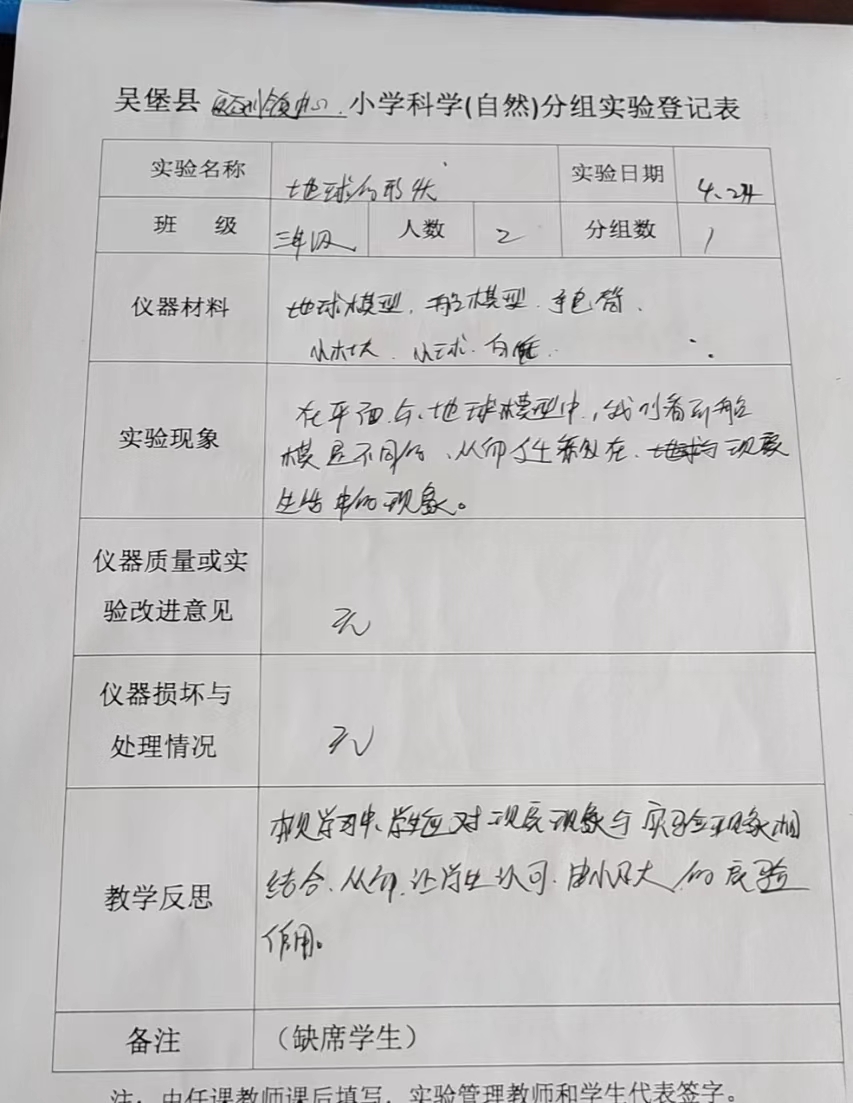 吴堡县 中心 小学科学(自然)分组实验登记表
实验名称 地球的形状 实验日期 4.24
班 级 三年级 人数 2 分组数 1
仪器材料
地球模型、船模型、手电筒、
小木块、小球、白
实验现象
在平面与、地球模型中,我们看到船
模是不同的、从而 在、现实
生活中的现象。
仪器质量或实
验改进意见
无
仪器损坏与
处理情况
无
教学反思
本见学习中、学生应对现实现象与实验现象相
结合、从而、让学生认可、由小见大的实验
作用。
备注 (缺席学生)
注:由任课教师课后填写,实验管理教师和学生代表签字。